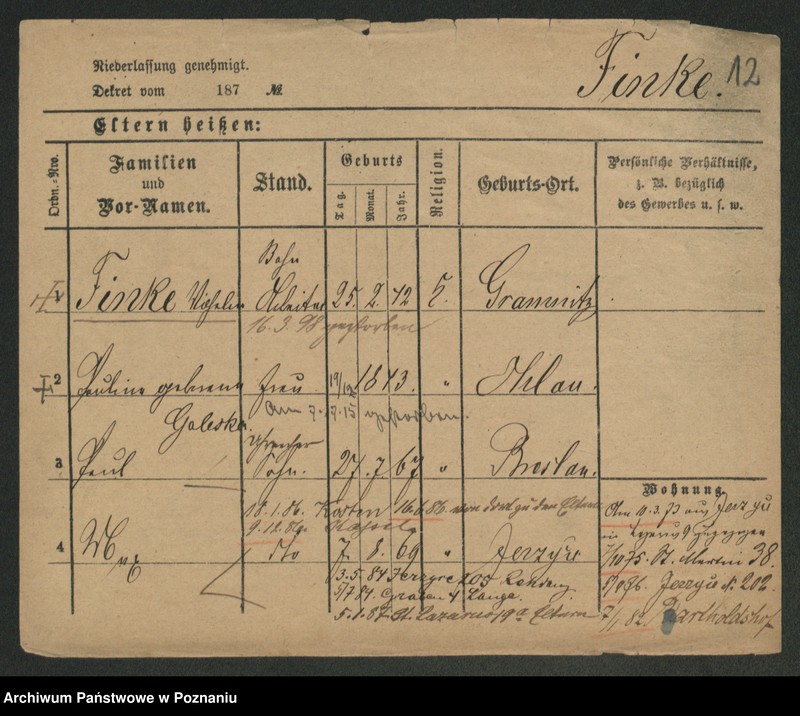 Niederlassung genehmigt.
Dekret vom 187 №
Finke. 12
Eltern heißen:
Ordn.=Nro.
Familien
und
Vor=Namen.
Stand.
Geburts
Tag.
Monat.
Jahr.
Religion.
Geburts=Ort.
Persönliche Verhältnisse,
z. B. bezüglich
des Gewerbes u. s. w.
Bahn
Finke Wilhelm Arbeiter 25. 2. 42 Gramnitz
16. 3. 98 gestorben
2 Pauline geborene Frau 19/12 1843. " Ohlau.
Am 7. 15 gestorben.
3 Paul Sohn. 27. 7. 67 " Breslau.
18.1.86. Kosten 16.6.86. von dort zu den Eltern
9.12.86.
4 Max dto 7. 8. 69 " Jerzyce
3.5.84 Jerzyce 205
5/7 84. Graben 4 Lange.
5.1.87. St. Lazarus 19a Eltern
Wohnung
Am 10.3.73 aus Jerzyce
7/10 75. St. Martin 38.
Jerzyce No. 202.
7/1 82. Bartholdshof
Archiwum Państwowe w Poznaniu